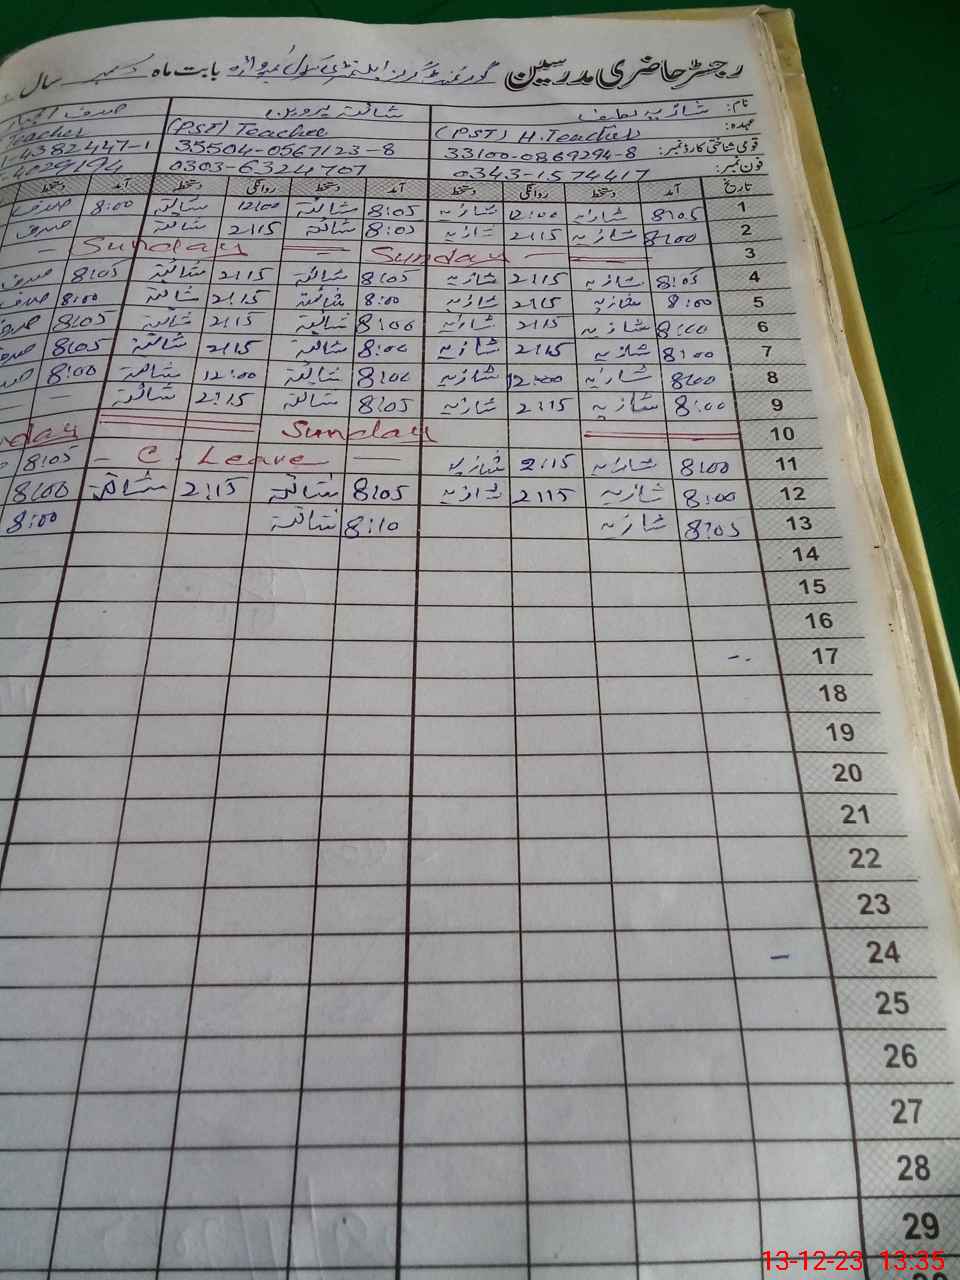 رجسٹر حاضری مدرسین گورنمنٹ گرلز ایلیمنٹری سکول بابت ماہ دسمبر سال
نام: شازیہ لطیف شائستہ پروین صدف
عہدہ: (PST) H.Teacher (PST) Teacher Teacher
قومی شناختی کارڈ نمبر: 33100-0869294-8 35504-0567123-8 4382447-1
فون نمبر: 0343-1574417 0303-6324707 4029194
تاریخ آمد دستخط روانگی دستخط آمد دستخط روانگی دستخط آمد دستخط
1 8:05 شازیہ 12:00 شازیہ 8:05 شائستہ 12:00 شائستہ 8:00 صدف
2 8:00 شازیہ 2:15 شازیہ 8:05 شائستہ 2:15 شائستہ صدف
3 Sunday Sunday
4 8:05 شازیہ 2:15 شازیہ 8:05 شائستہ 2:15 شائستہ 8:05 صدف
5 8:00 شازیہ 2:15 شازیہ 8:00 شائستہ 2:15 شائستہ 8:00 صدف
6 8:00 شازیہ 2:15 شازیہ 8:00 شائستہ 2:15 شائستہ 8:05 صدف
7 8:00 شازیہ 2:15 شازیہ 8:00 شائستہ 2:15 شائستہ 8:05 صدف
8 8:00 شازیہ 12:00 شازیہ 8:00 شائستہ 12:00 شائستہ 8:00
9 8:00 شازیہ 2:15 شازیہ 8:05 شائستہ 2:15 شائستہ — —
10 Sunday nday
11 8:00 شازیہ 2:15 شازیہ — C. Leave — 8:05
12 8:00 شازیہ 2:15 شازیہ 8:05 شائستہ 2:15 شائستہ 8:00
13 8:05 شازیہ 8:10 شائستہ 8:00
14
15
16
17
18
19
20
21
22
23
24 -
25
26
27
28
29
13-12-23 13:35